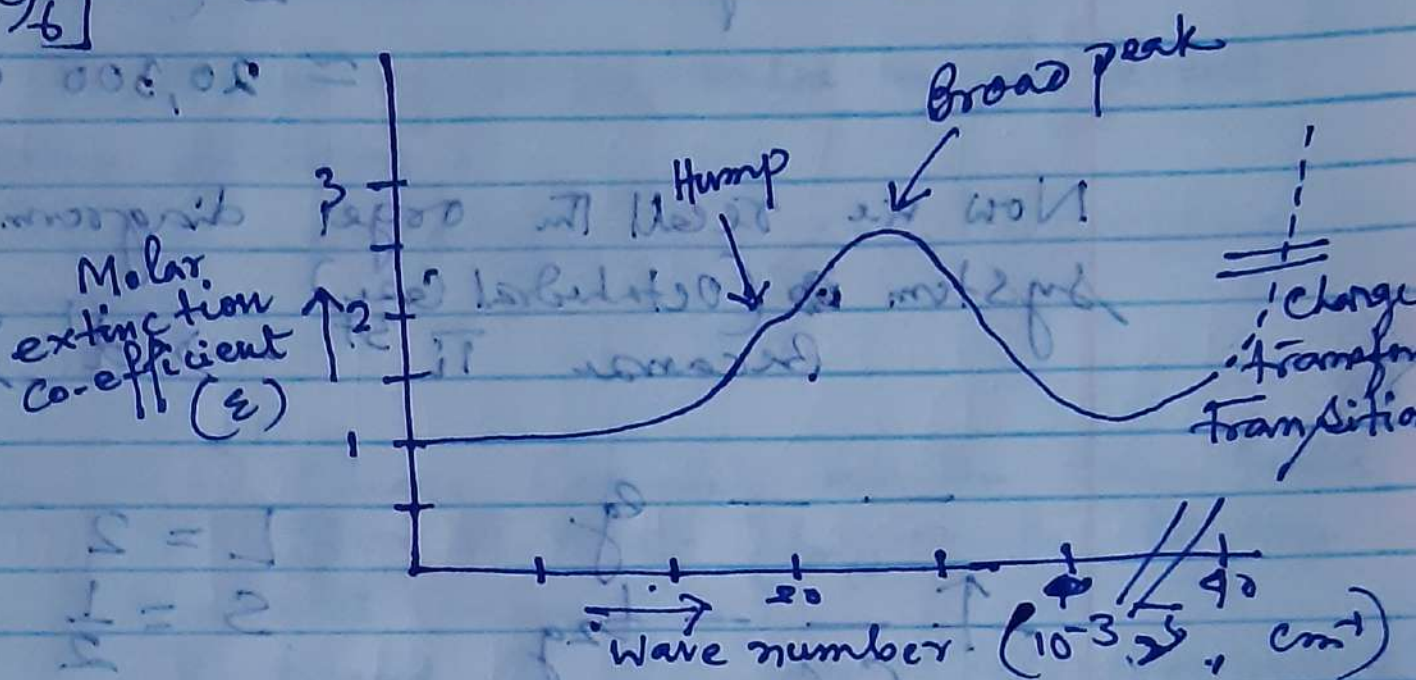 Broad peak
Hump
3
2
1
Molar
extinction
co-efficient
(ε)
Charge
transfer
transition
20
40
Wave number (10⁻³ , cm⁻¹)